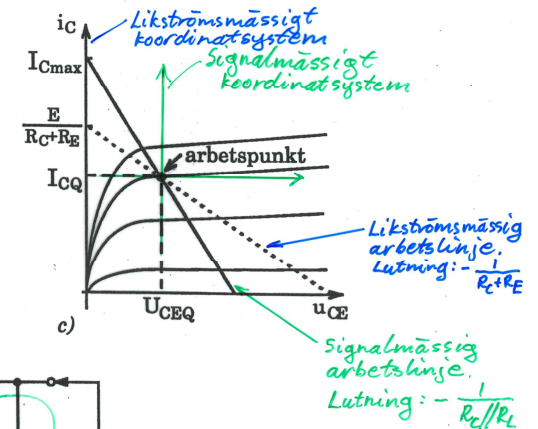 iC
Likströmsmässigt
koordinatsystem
Signalmässigt
koordinatsystem
ICmax
E
RC+RE
arbetspunkt
ICQ
Likströmsmässig
arbetslinje.
Lutning: - 1
RC+RE
UCEQ
uCE
c)
Signalmässig
arbetslinje.
Lutning: - 1
RC//RL